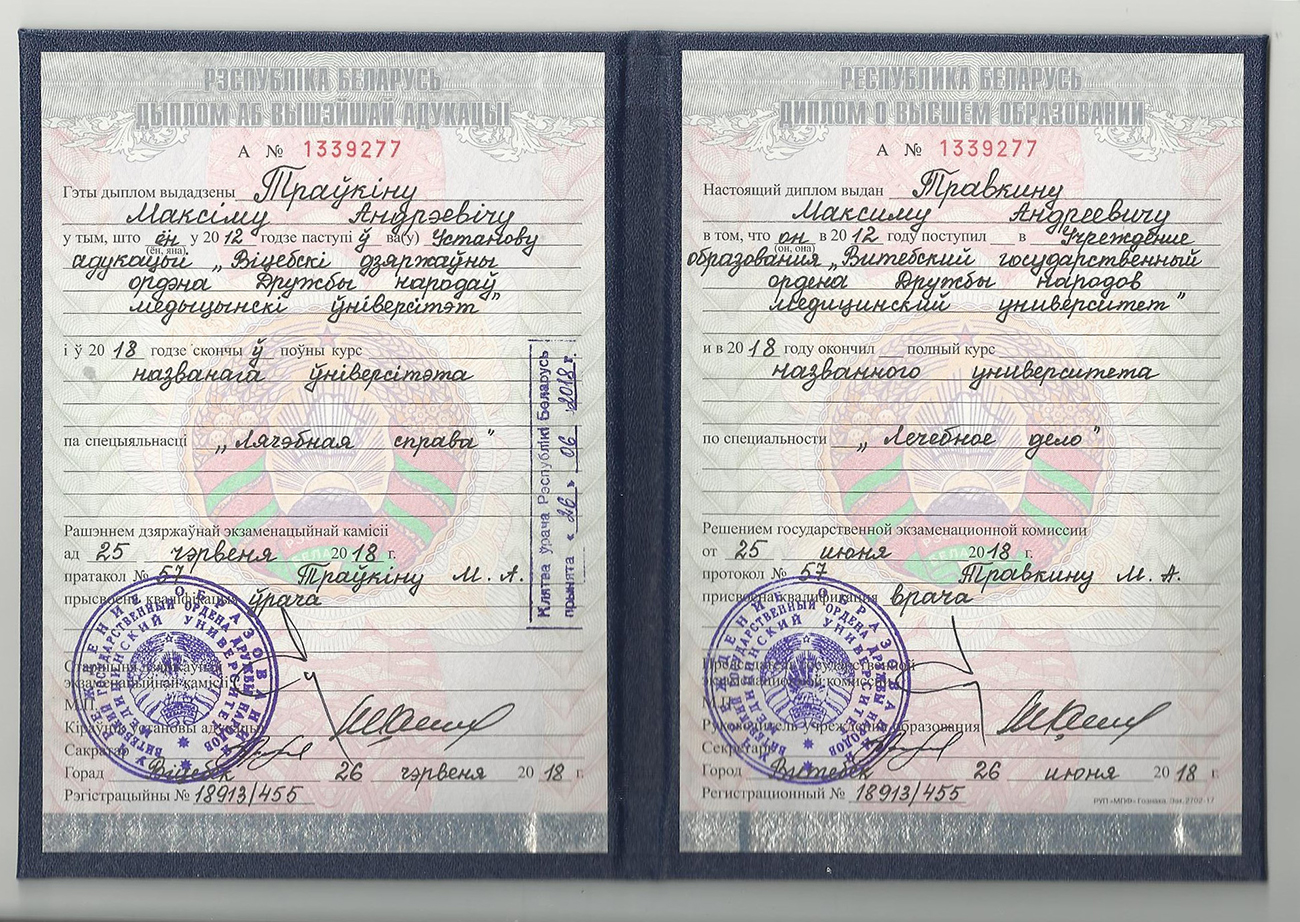 РЭСПУБЛІКА БЕЛАРУСЬ
ДЫПЛОМ АБ ВЫШЭЙШАЙ АДУКАЦЫІ
А № 1339277
Гэты дыплом выдадзены Траўкіну
Максіму Андрэевічу
у тым, што ён у 20 12 годзе паступі ў ва(у) Установу
(ён, яна)
адукацыі „Віцебскі дзяржаўны
ордэна Дружбы народаў
медыцынскі ўніверсітэт"
і ў 20 18 годзе скончы ў поўны курс
названага ўніверсітэта
па спецыяльнасці „Лячэбная справа"
Рашэннем дзяржаўнай экзаменацыйнай камісіі
ад 25 чэрвеня 20 18 г.
пратакол № 57 Траўкіну М. А.
прысвоена кваліфікацыя ўрача
Старшыня дзяржаўнай
экзаменацыйнай камісіі
М.П.
Кіраўнік установы адукацыі
Сакратар
Горад Віцебск 26 чэрвеня 20 18 г.
Рэгістрацыйны № 18913/455
Клятва ўрача Рэспублікі Беларусь
прынята « 26 » 06 2018 г.
УЧРЕЖДЕНИЕ ОБРАЗОВАНИЯ
ВИТЕБСКИЙ ГОСУДАРСТВЕННЫЙ ОРДЕНА ДРУЖБЫ НАРОДОВ
МЕДИЦИНСКИЙ УНИВЕРСИТЕТ
РЕСПУБЛИКА БЕЛАРУСЬ
ДИПЛОМ О ВЫСШЕМ ОБРАЗОВАНИИ
А № 1339277
Настоящий диплом выдан Травкину
Максиму Андреевичу
в том, что он в 20 12 году поступил в Учреждение
(он, она)
образования „Витебский государственный
ордена Дружбы народов
медицинский университет"
и в 20 18 году окончил полный курс
названного университета
по специальности „Лечебное дело"
Решением государственной экзаменационной комиссии
от 25 июня 20 18 г.
протокол № 57 Травкину М. А.
присвоена квалификация врача
Председатель государственной
экзаменационной комиссии
М.П.
Руководитель учреждения образования
Секретарь
Город Витебск 26 июня 20 18 г.
Регистрационный № 18913/455
РУП «МПФ» Гознака. Зак. 2702-17
УЧРЕЖДЕНИЕ ОБРАЗОВАНИЯ
ВИТЕБСКИЙ ГОСУДАРСТВЕННЫЙ ОРДЕНА ДРУЖБЫ НАРОДОВ
МЕДИЦИНСКИЙ УНИВЕРСИТЕТ